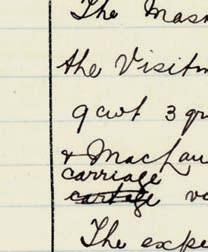 The Mas
the Visit
9 cwt 3 q
& MacLau
carriage
cartage
The expe